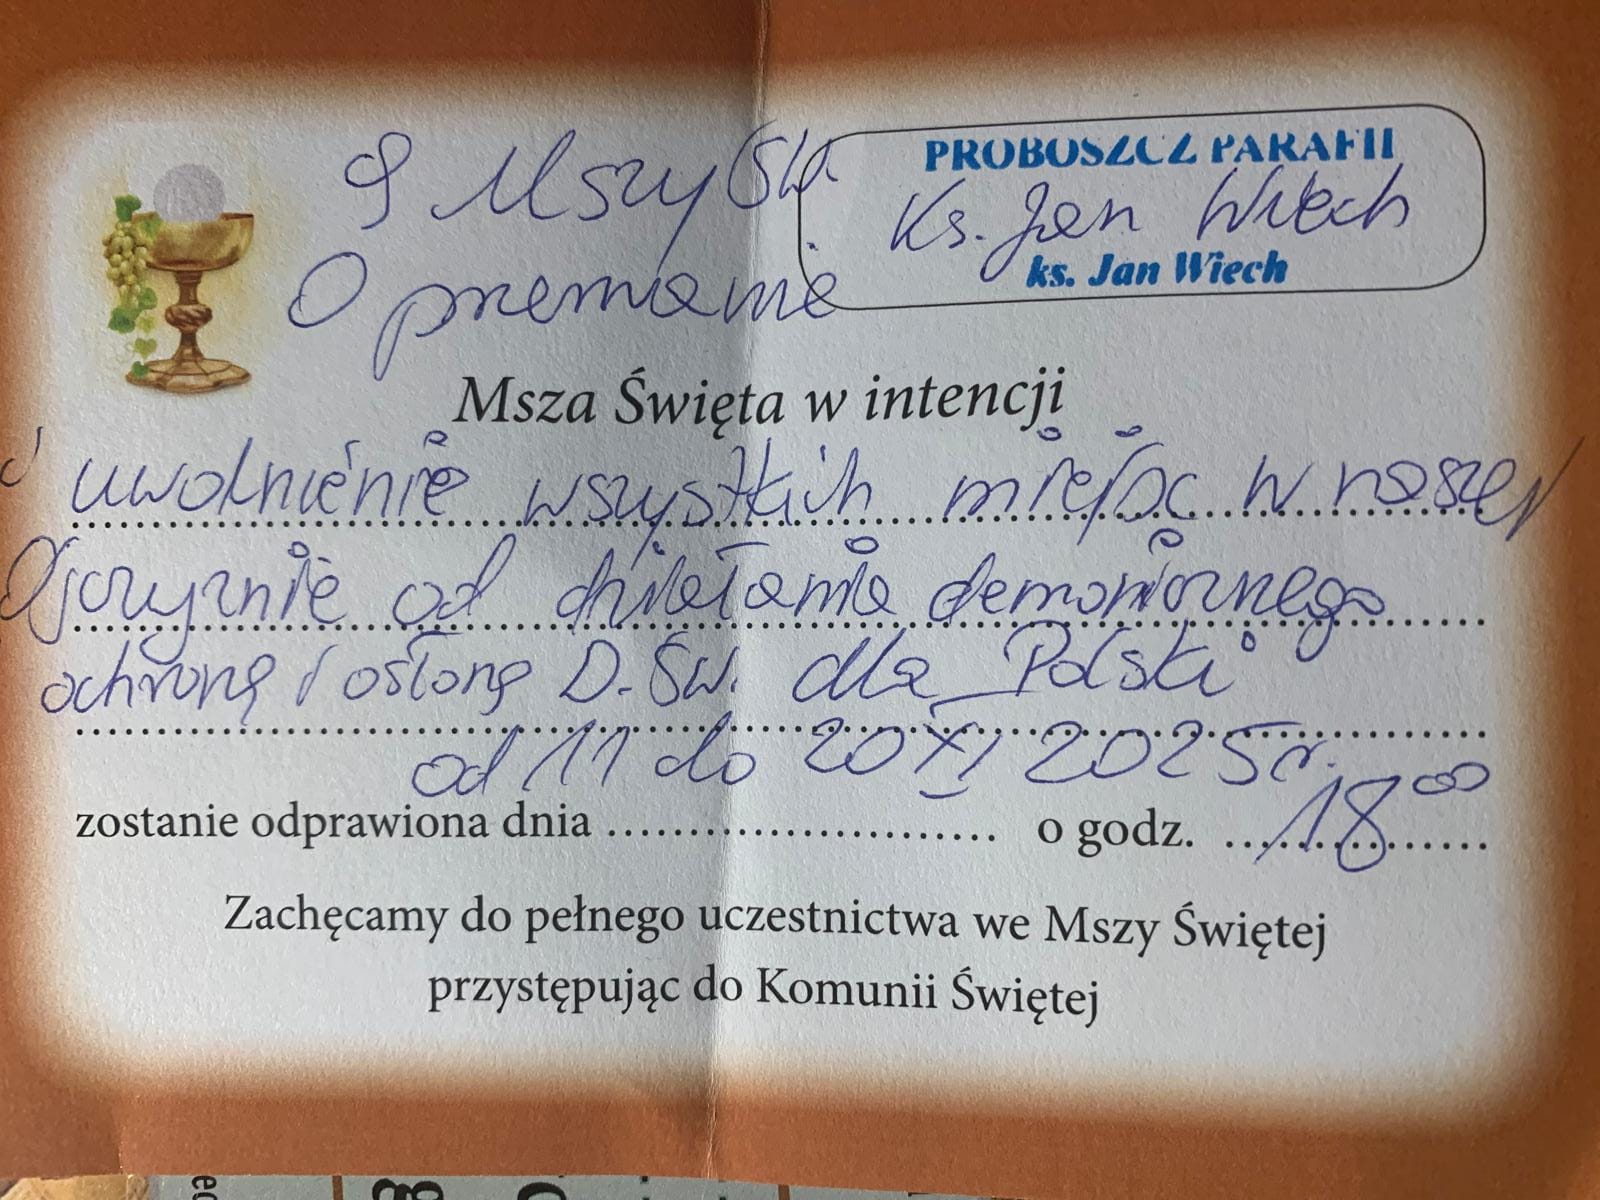 9 Mszy Św.
O przemianę
PROBOSZCZ PARAFII
Ks. Jan Wiech
ks. Jan Wiech
Msza Święta w intencji
uwolnienie wszystkich miejsc w naszej
Ojczyźnie od działania demonicznego
ochronę i osłonę D. Św. dla Polski
od 11 do 20 XI 2025 r.
zostanie odprawiona dnia .......................... o godz. 18 00
Zachęcamy do pełnego uczestnictwa we Mszy Świętej
przystępując do Komunii Świętej